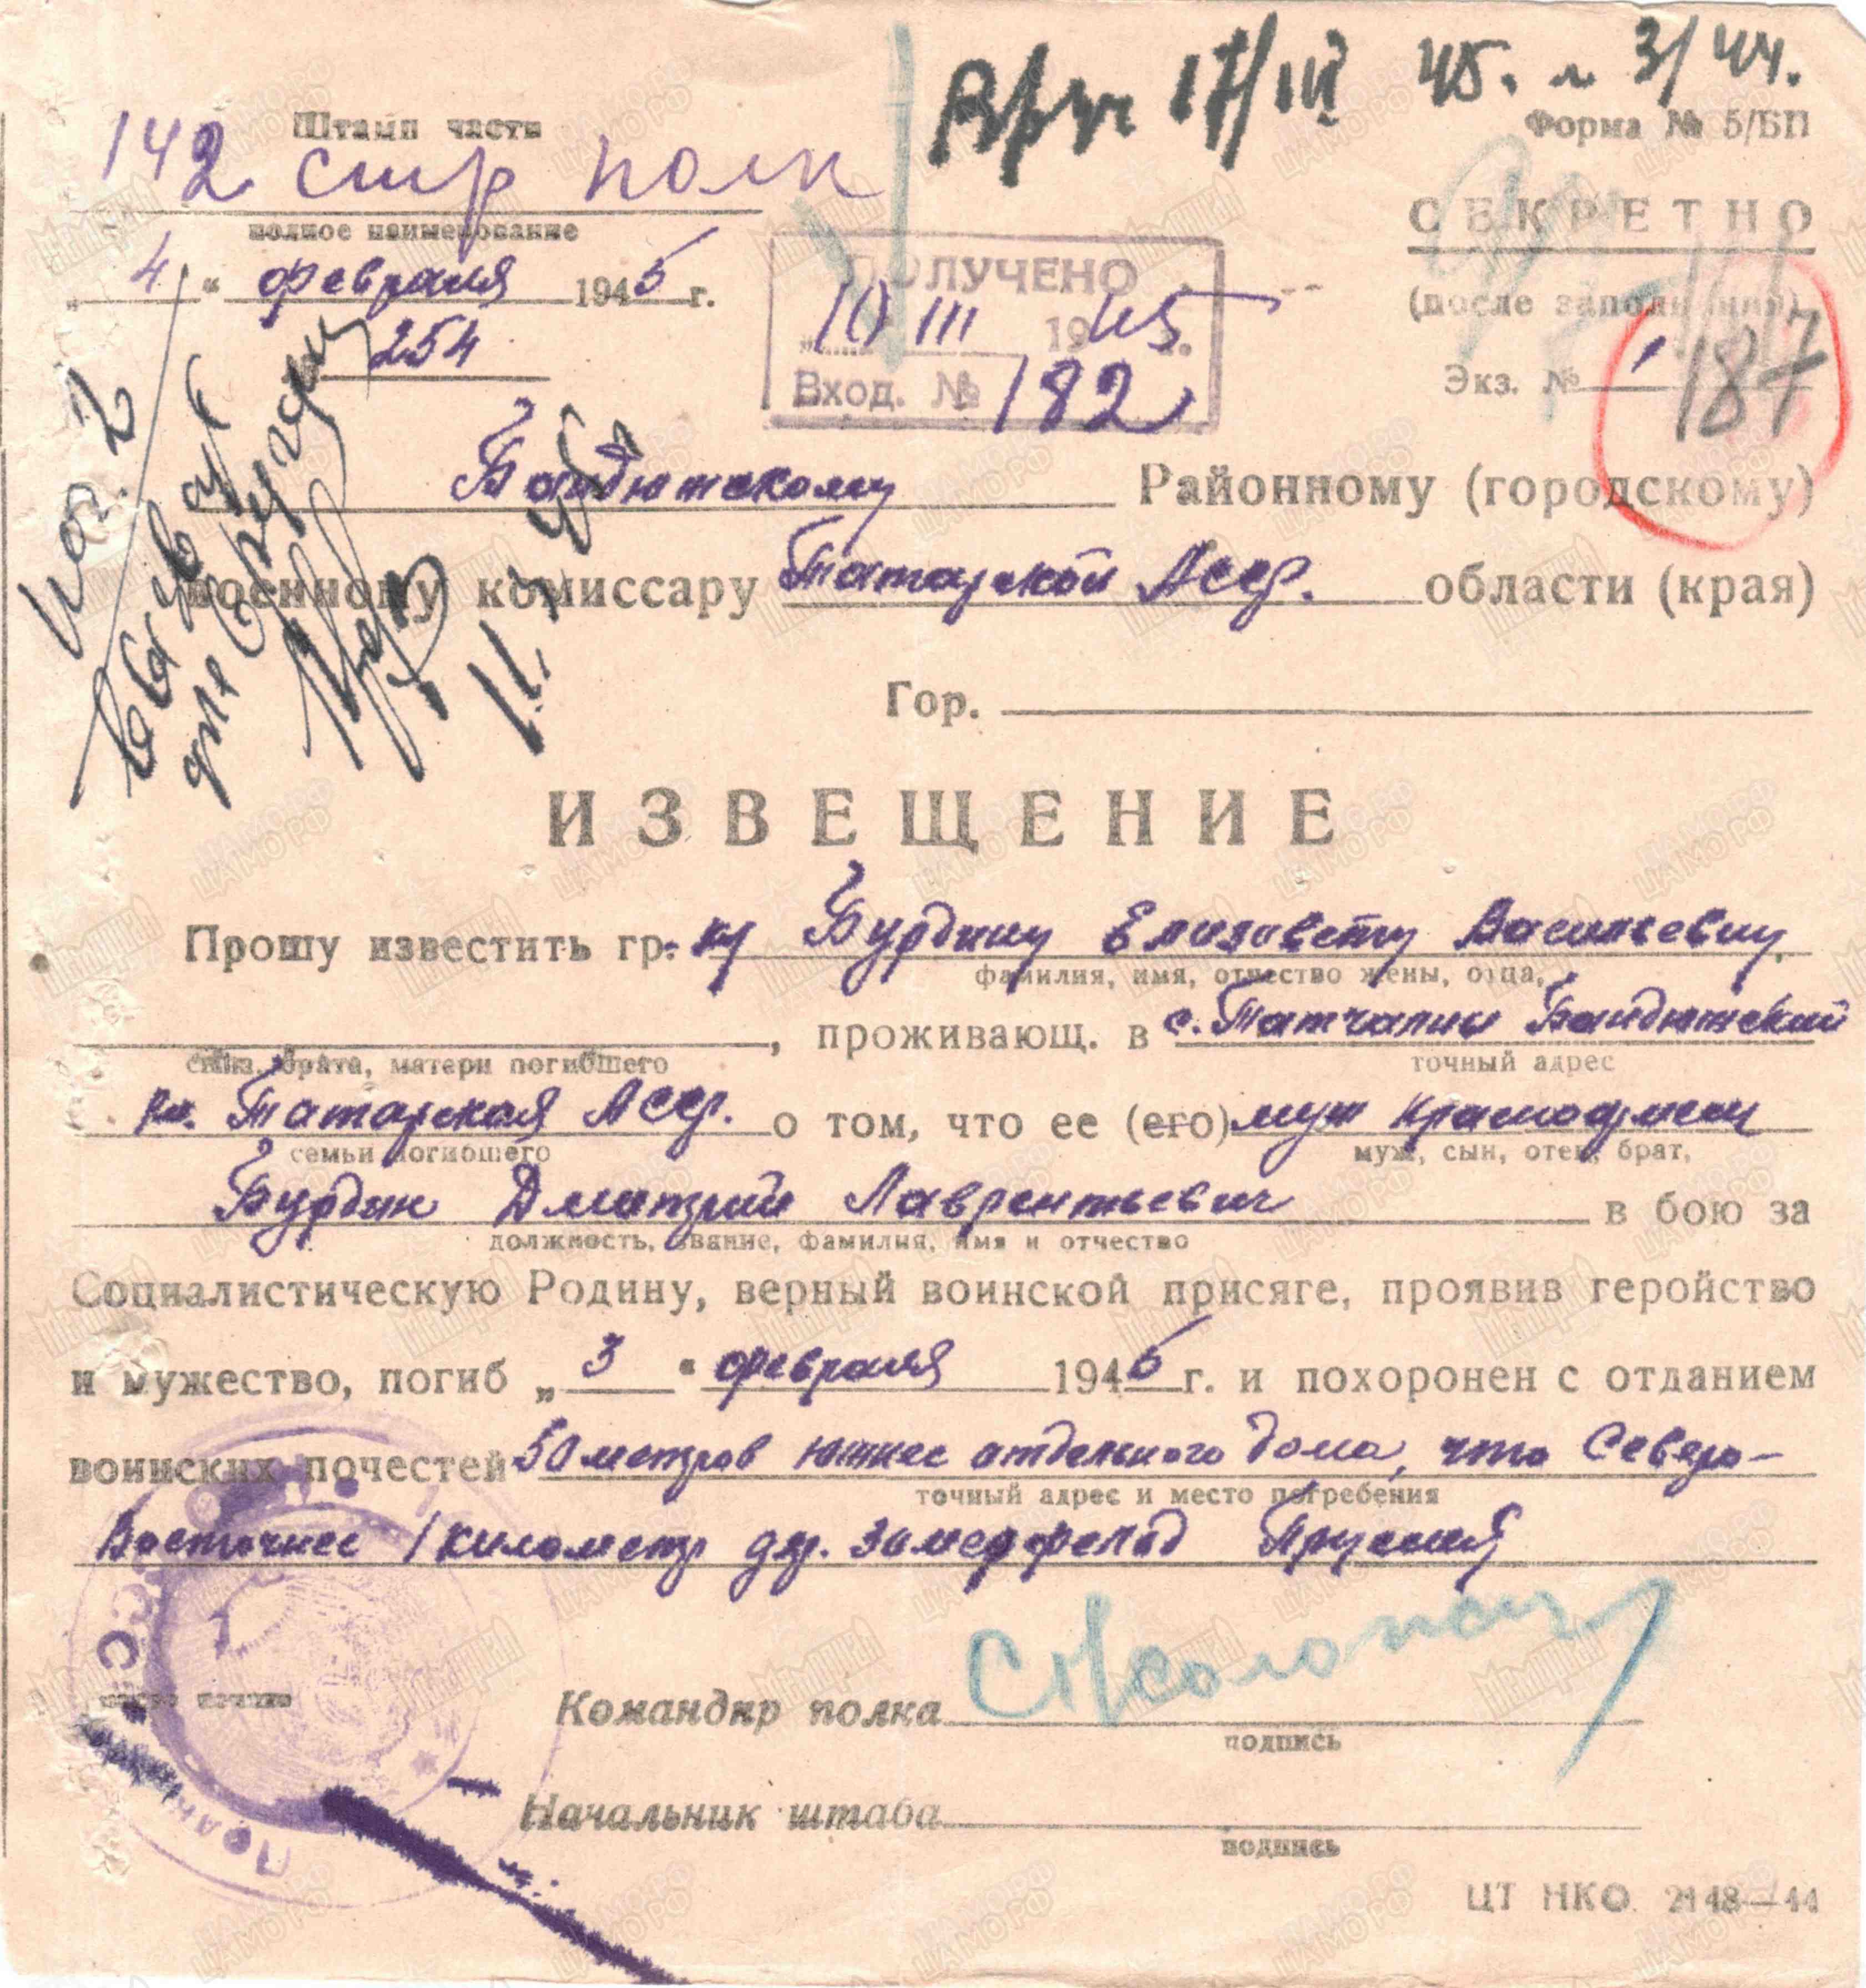 17/III 45. 3/44.
Форма № 5/БП
Штамп части
142 стр полк
полное наименование
СЕКРЕТНО
(после заполнения)
„4“ февраля 1945 г.
254
ПОЛУЧЕНО
10 III 1945 г.
Вход. № 182
Экз. № 1
187
Районному (городскому)
военному комиссару Татарской Асср. области (края)
Гор.
по г. 2
вызвать
для вручения
ИЗВЕЩЕНИЕ
Прошу известить гр-ку Бурдину Елизавету Васильевну,
фамилия, имя, отчество жены, отца,
, проживающ. в с. Татчалны
сына, брата, матери погибшего
точный адрес
Татарская Асср. о том, что ее (его) муж красноармеец
семьи погибшего
муж, сын, отец, брат,
Бурдин Дмитрий Лаврентьевич в бою за
должность, звание, фамилия, имя и отчество
Социалистическую Родину, верный воинской присяге, проявив геройство
и мужество, погиб „3“ февраля 1945 г. и похоронен с отданием
воинских почестей 50 метров южнее отдельного дома, что Северо-
точный адрес и место погребения
Восточнее 1 километр дер. Зомерфельд Пруссия
место печати
Командир полка
подпись
Начальник штаба
подпись
ЦТ НКО 2148—44